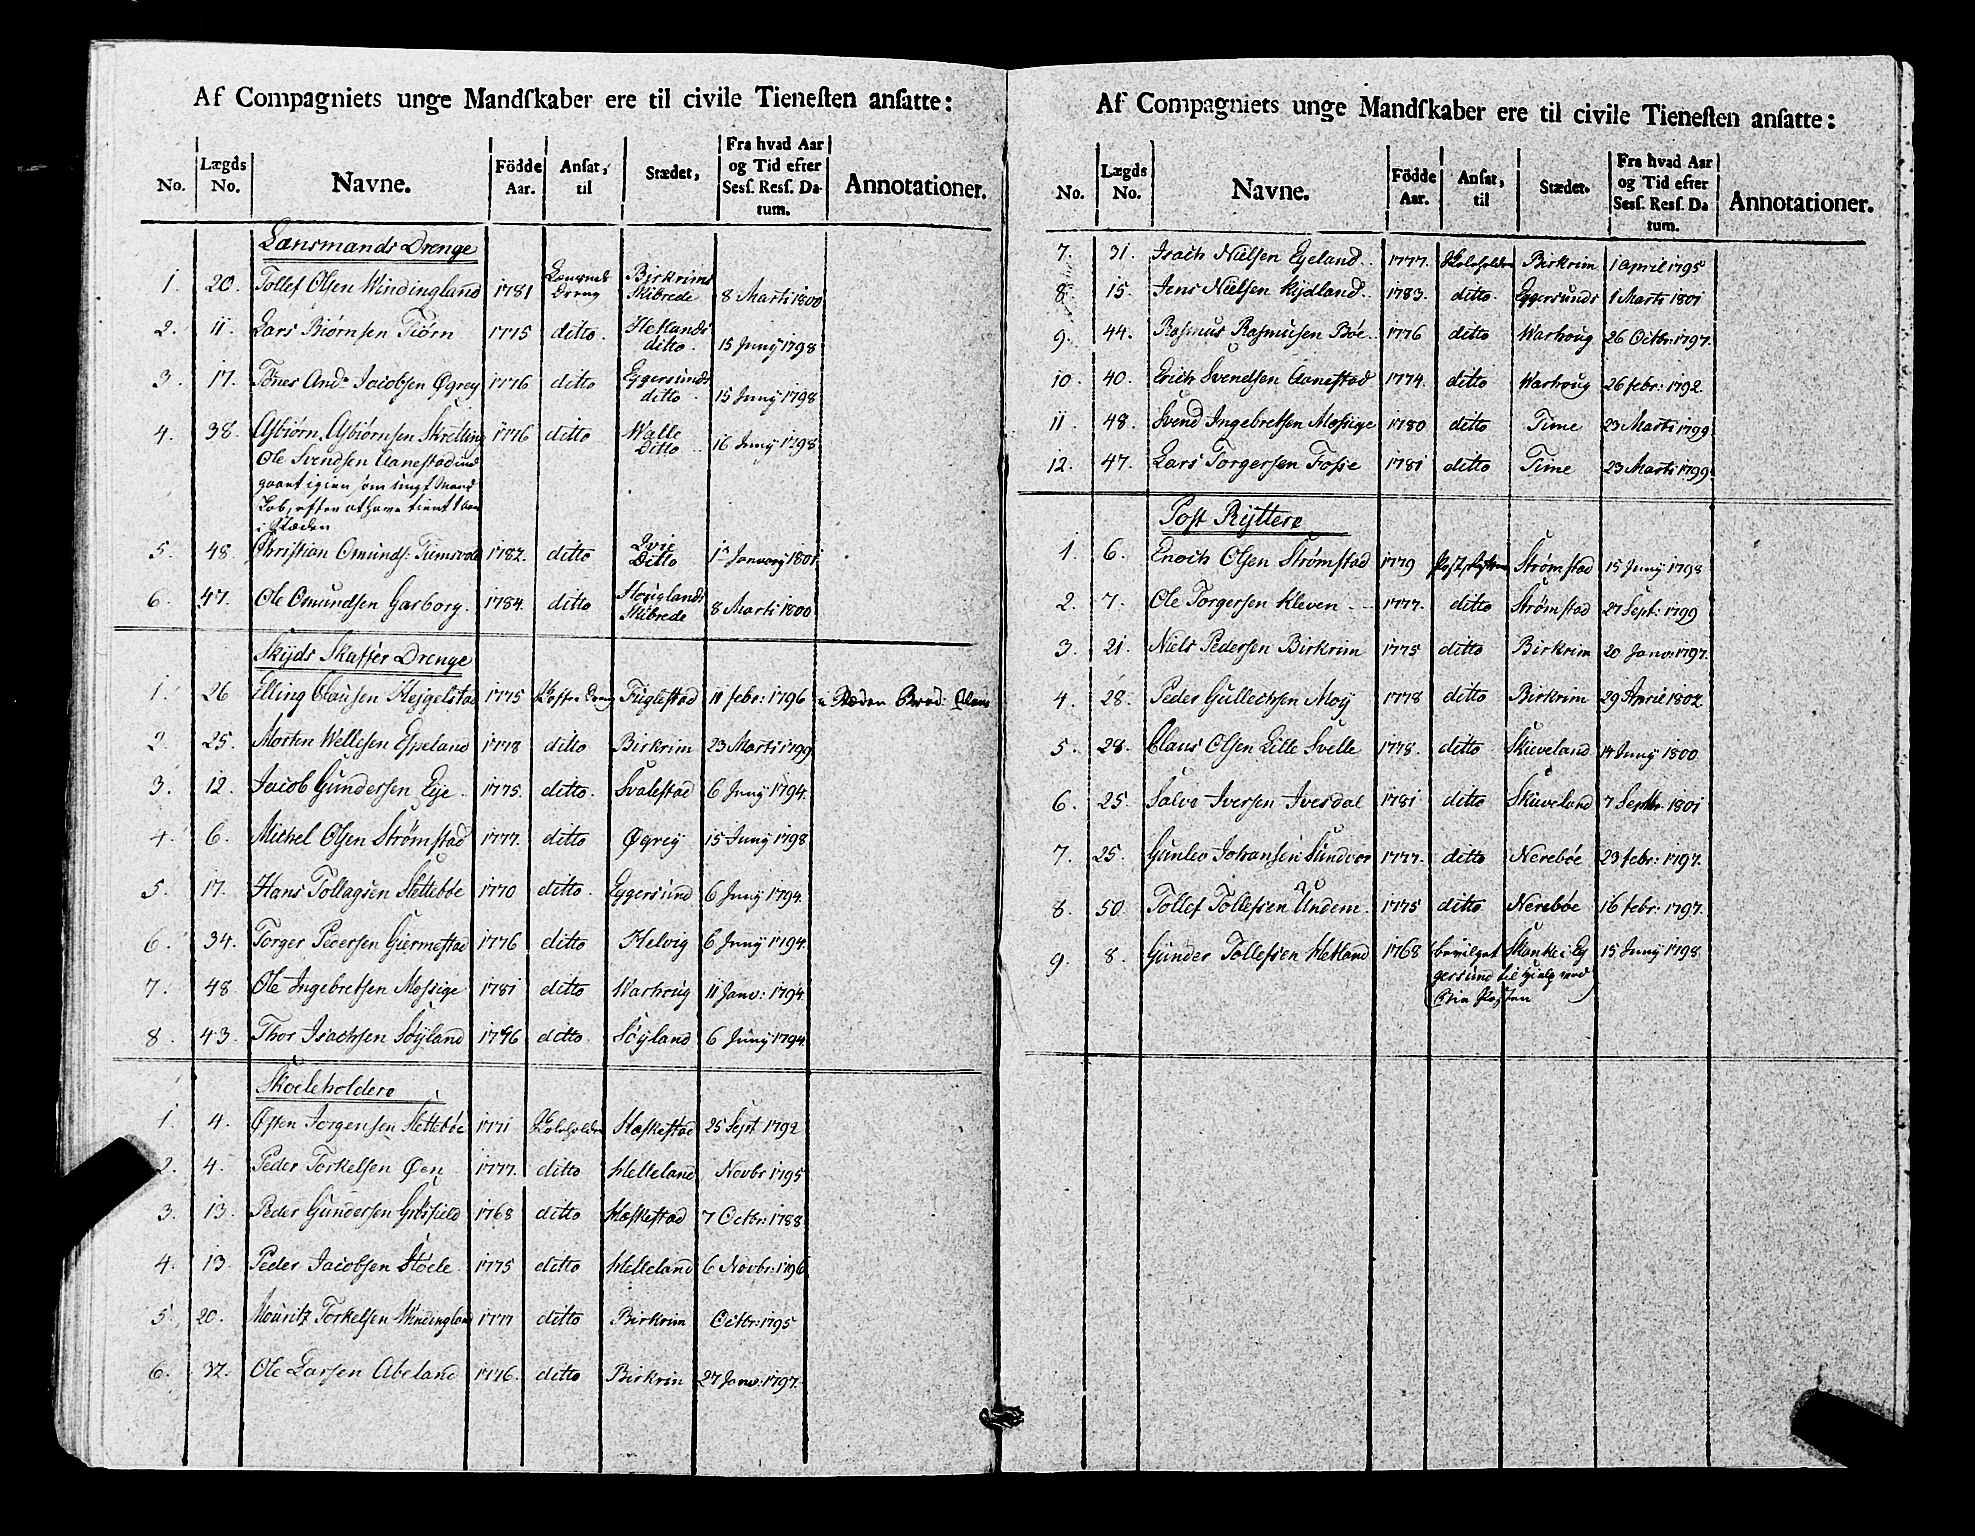 Af Compagniets unge Mandſkaber ere til civile Tieneſten anſatte:
No. Lægds No. Navne. Födde Aar. Anſat, til Stædet, Fra hvad Aar og Tid efter Sesſ. Resſ. Datum. Annotationer.
Lænsmands Drenge
1. 20. Tollef Olsen Windingland 1781 Lænsmds Dreng Birkrims Skibrede 8 Marti 1800
2. 11. Lars Biørnsen Tiørn 1775 ditto. Hetlands ditto. 15 Junÿ 1798
3. 17. Tönes And: Jacobsen Øgreÿ 1776 ditto Eggersunds ditto 15 Junÿ 1798
4. 38. Asbiørn Asbiørnsen Skretting 1776 ditto Walle Ditto 16 Junÿ 1798
Ole Svendsen Aanestad ind
gaaet igien som ungt Mand
Skab, efter at have tient
i Stæden
5. 48. Christian Omunds: Tiemsvold 1782. ditto Qvie Ditto 1 Januarÿ 1801
6. 47. Ole Omundsen Garborg. 1784. ditto Houglands Skibrede 8 Marti 1800
Skÿds Skaffer Drenge
1. 26 Elling Clausen Heggelstad 1775 Skaffer Dreng Fuglestad 11 febr: 1796 i Stæden Broder Claus
2. 25. Morten Wellesen Espeland 1778 ditto Birkrim 23 Marti 1799
3. 12. Jacob Gundersen Eÿe. 1775. ditto. Svalestad 6 Junÿ 1794.
4. 6. Michel Olsen Strømstad 1777. ditto Øgreÿ 15 Junÿ 1798
5. 17. Hans Tollagsen Slettebøe 1770 ditto. Eggersund 6 Junÿ 1794.
6. 34. Torger Pedersen Giermestad 1776 ditto Helvig 6 Junÿ 1794.
7. 48. Ole Ingebretsen Mossige 1781 ditto Warhoug 11 Janv: 1794.
8. 43. Thor Isachsen Søÿland 1796 ditto. Søÿland 6 Junÿ 1794.
Skoeleholdere
1. 4. Østen Jorgensen Slettebøe 1771 Skoleholder Hæskestad 25 Sept 1792
2. 4. Peder Torkelsen Øen 1777. ditto Helleland Novbr 1795
3. 13. Peder Gundersen Grøsfield 1768 ditto Hæskestad 7 Octbr: 1788.
4. 13. Peder Jacobsen Støele. 1775 ditto Helleland 6 Novbr: 1796
5. 20. Mouritz Torkelsen Windingland 1777 ditto Birkrim Octbr: 1795
6. 32. Ole Larsen Abeland 1776. ditto Birkrim 27 Janv: 1797.
Af Compagniets unge Mandſkaber ere til civile Tieneſten anſatte:
No. Lægds No. Navne. Födde Aar. Anſat, til Stædet. Fra hvad Aar og Tid efter Sesſ. Resſ. Datum. Annotationer.
7. 31. Isach Nielsen Egeland. 1777. Skoleholder Birkrim 1 April 1795
8 15. Jens Nielsen Kydland. 1783. ditto Eggersunds 1 Marti 1801
9. 44. Rasmus Rasmusen Bøe 1776 ditto Warhoug 26 Octbr: 1797.
10. 40. Erich Svendsen Aanestad 1774. ditto Warhoug 26 febr: 1792.
11 48. Svend Ingebretsen Mossige 1780 ditto Time 23 Marti 1799
12. 47. Lars Torgersen Fosse 1781 ditto Time 23 Marti 1799.
Post Rÿttere
1. 6. Enoch Olsen Strømstad 1779 Postrÿtter Strømstad 15 Junÿ 1798
2. 7. Ole Torgersen Kleven 1777. ditto Strømstad 27 Sept: 1799
3. 21. Niels Pedersen Birkrim 1775 ditto Birkrim 20 Janv: 1797.
4. 28. Peder Gullechsen Moÿ 1778 ditto Birkrim 29 April 1802.
5. 28. Claus Olsen Lille Svelle 1778. ditto Skueveland 14 Junÿ 1800
6. 25. Salve Iversen Ivesdal 1781 ditto Skueveland 7 Septbr: 1801
7. 25. Gunleo Johansen Sundvor 1777. ditto Nerebøe 23 febr: 1797.
8. 50. Tollef Tollefsen Undem. 1775 ditto Nerebøe 16 febr: 1797.
9. 8. Gunder Tollefsen Hetland 1768 bevilget Skanke i Eg 15 Junÿ 1798
gersund til hielp ved
Bie Posten